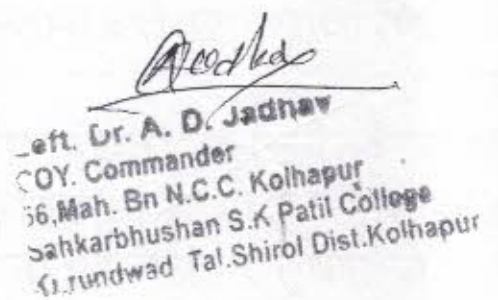 Left. Dr. A. D. Jadhav
COY. Commander
56,Mah. Bn N.C.C. Kolhapur
Sahkarbhushan S.K Patil College
Kurundwad Tal.Shirol Dist.Kolhapur